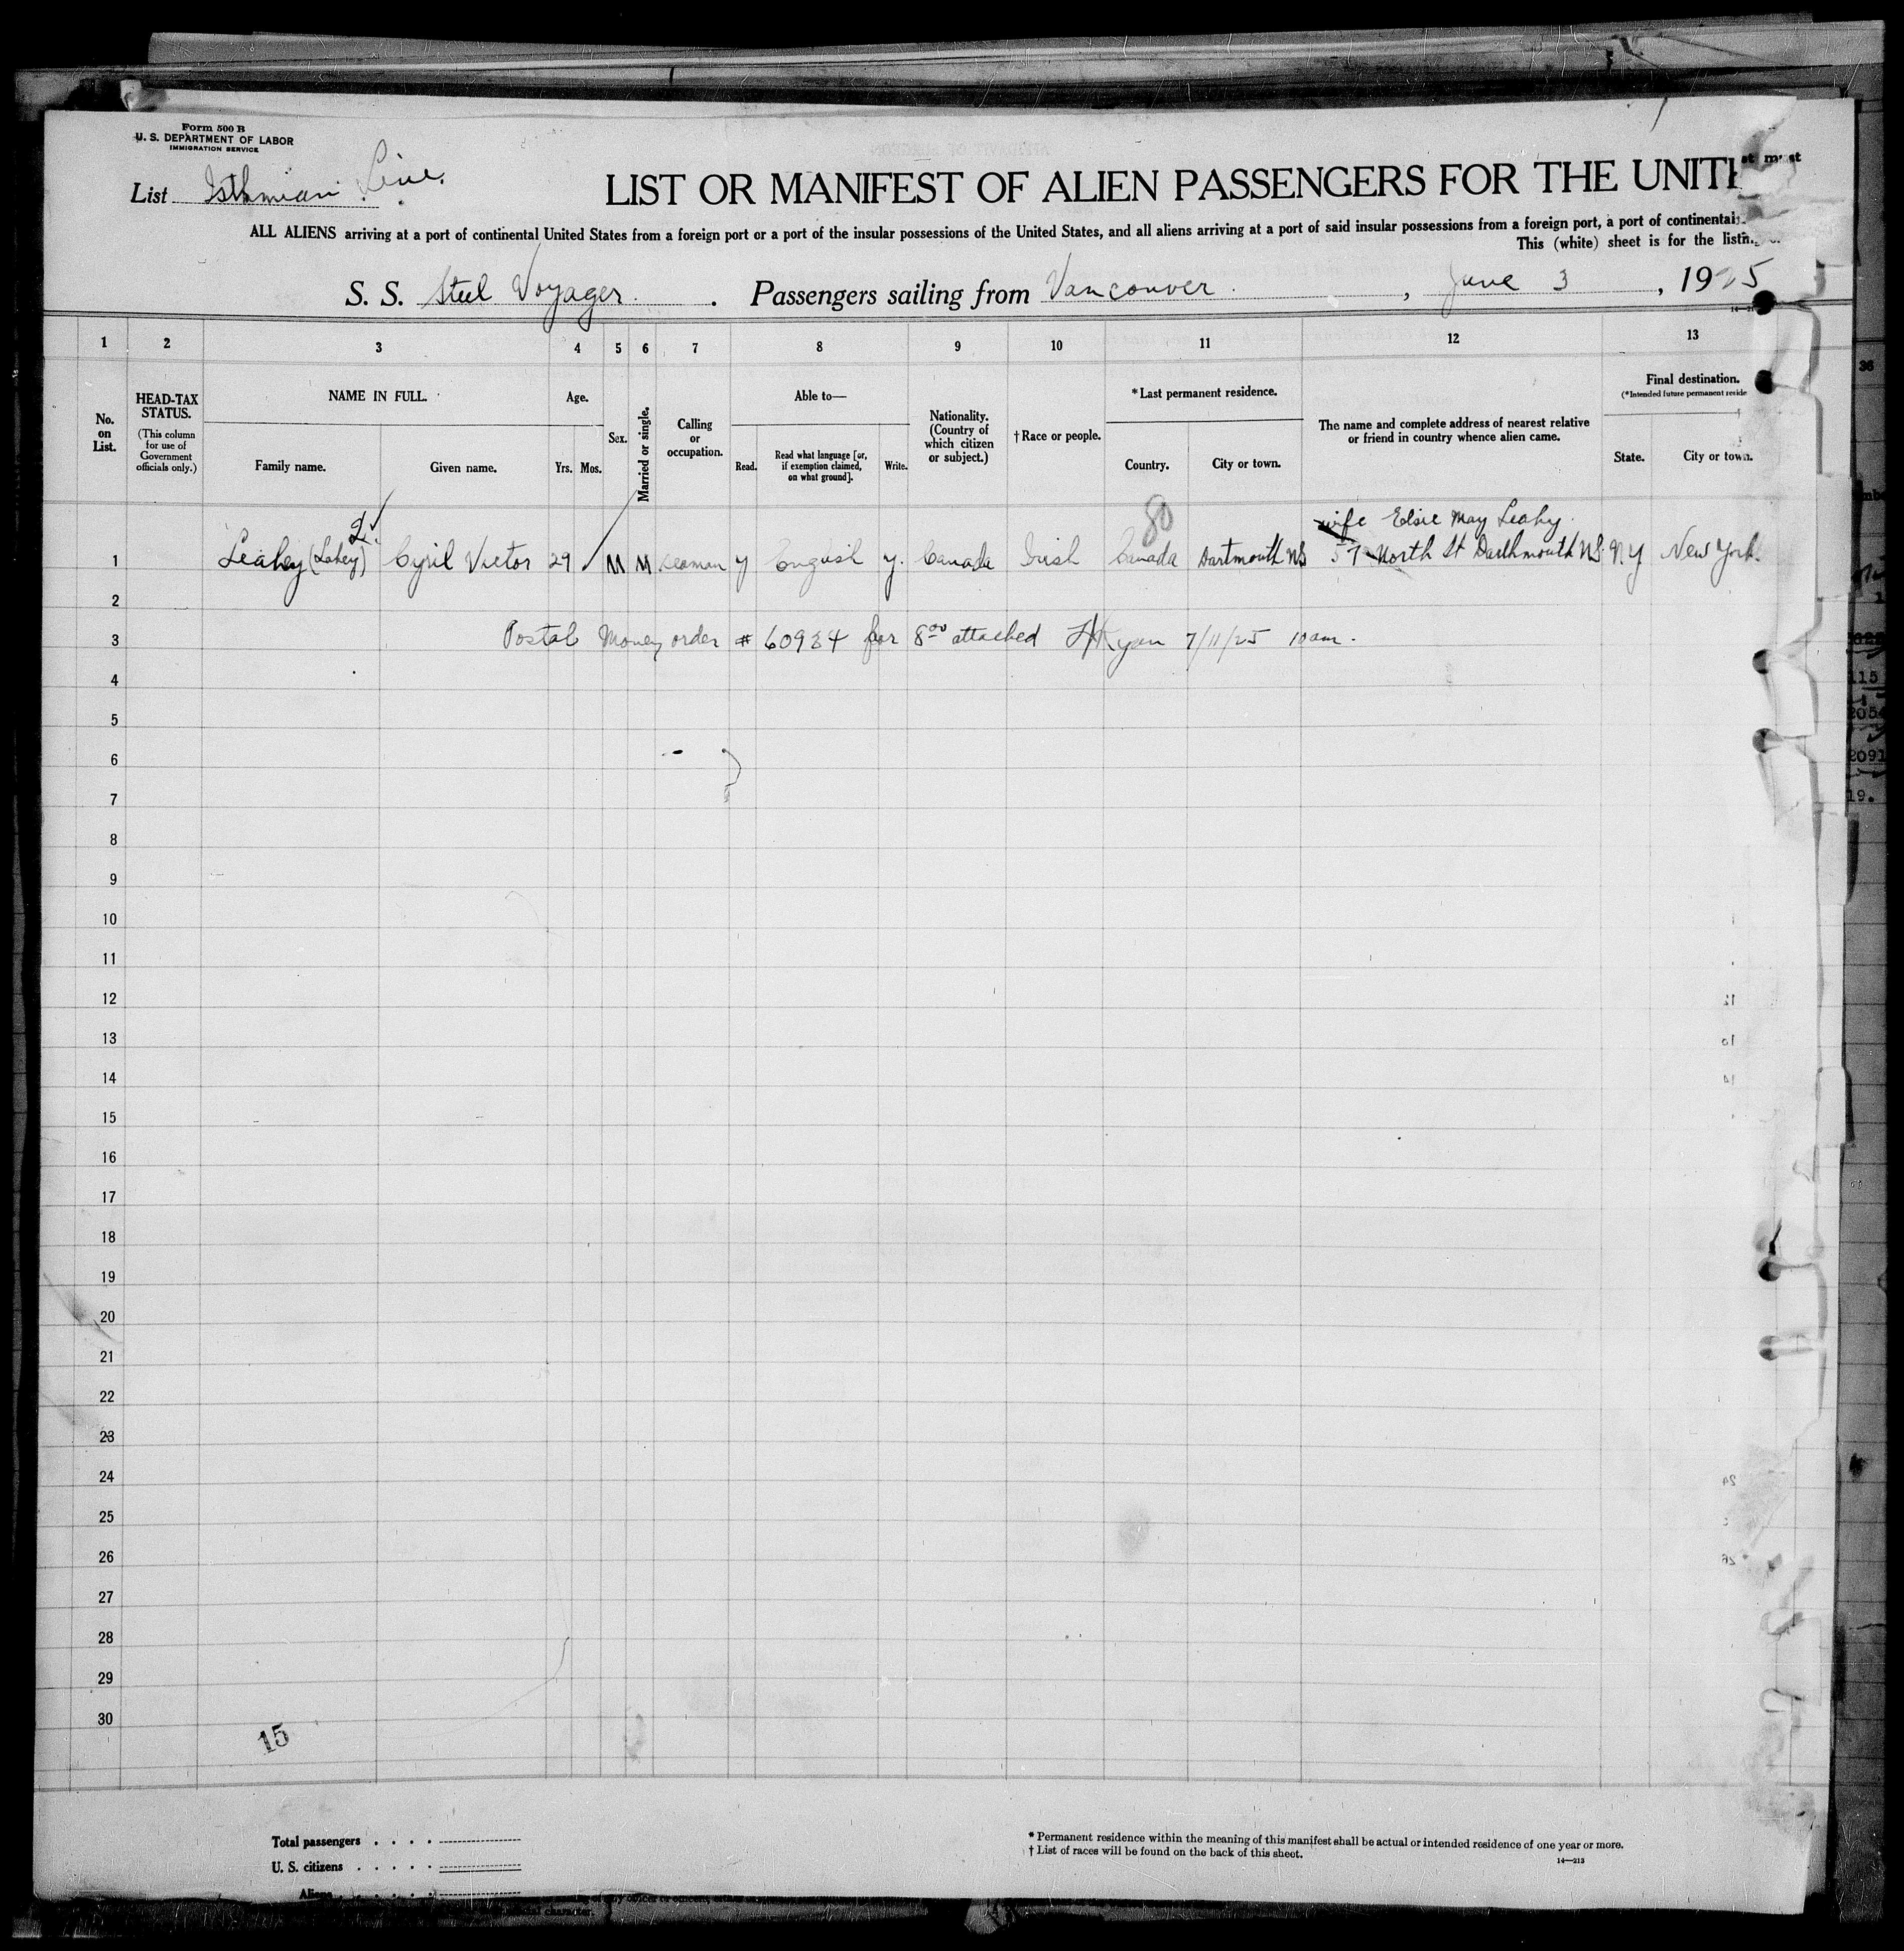 Form 500 B
U. S. DEPARTMENT OF LABOR
IMMIGRATION SERVICE
List Isthmian Line.
LIST OR MANIFEST OF ALIEN PASSENGERS FOR THE UNITE
ALL ALIENS arriving at a port of continental United States from a foreign port or a port of the insular possessions of the United States, and all aliens arriving at a port of said insular possessions from a foreign port, a port of continental
This (white) sheet is for the listing
S. S. Steel Voyager. Passengers sailing from Vancouver, June 3, 1925
1 2 3 4 5 6 7 8 9 10 11 12 13
No. on List.
HEAD-TAX STATUS.
(This column for use of Government officials only.)
NAME IN FULL.
Family name. Given name.
Age.
Yrs. Mos.
Sex.
Married or single.
Calling or occupation.
Able to—
Read. Read what language [or, if exemption claimed, on what ground]. Write.
Nationality. (Country of which citizen or subject.)
† Race or people.
* Last permanent residence.
Country. City or town.
The name and complete address of nearest relative or friend in country whence alien came.
Final destination.
(*Intended future permanent reside
State. City or town.
80
wife Elsie May Leahy.
1 Leahey (Lahey) Cyril Victor 29 M M seaman y English y. Canada Irish Canada Dartmouth NS 57 North St Darthmouth NS. N.Y. New York.
2
3 Postal Money order # 60984 for 8.00 attached 7/11/25 10 am.
4
5
6
7
8
9
10
11
12
13
14
15
16
17
18
19
20
21
22
23
24
25
26
27
28
29
30
15
Total passengers . . . .
U. S. citizens . . . . .
Aliens
* Permanent residence within the meaning of this manifest shall be actual or intended residence of one year or more.
† List of races will be found on the back of this sheet.
14—213